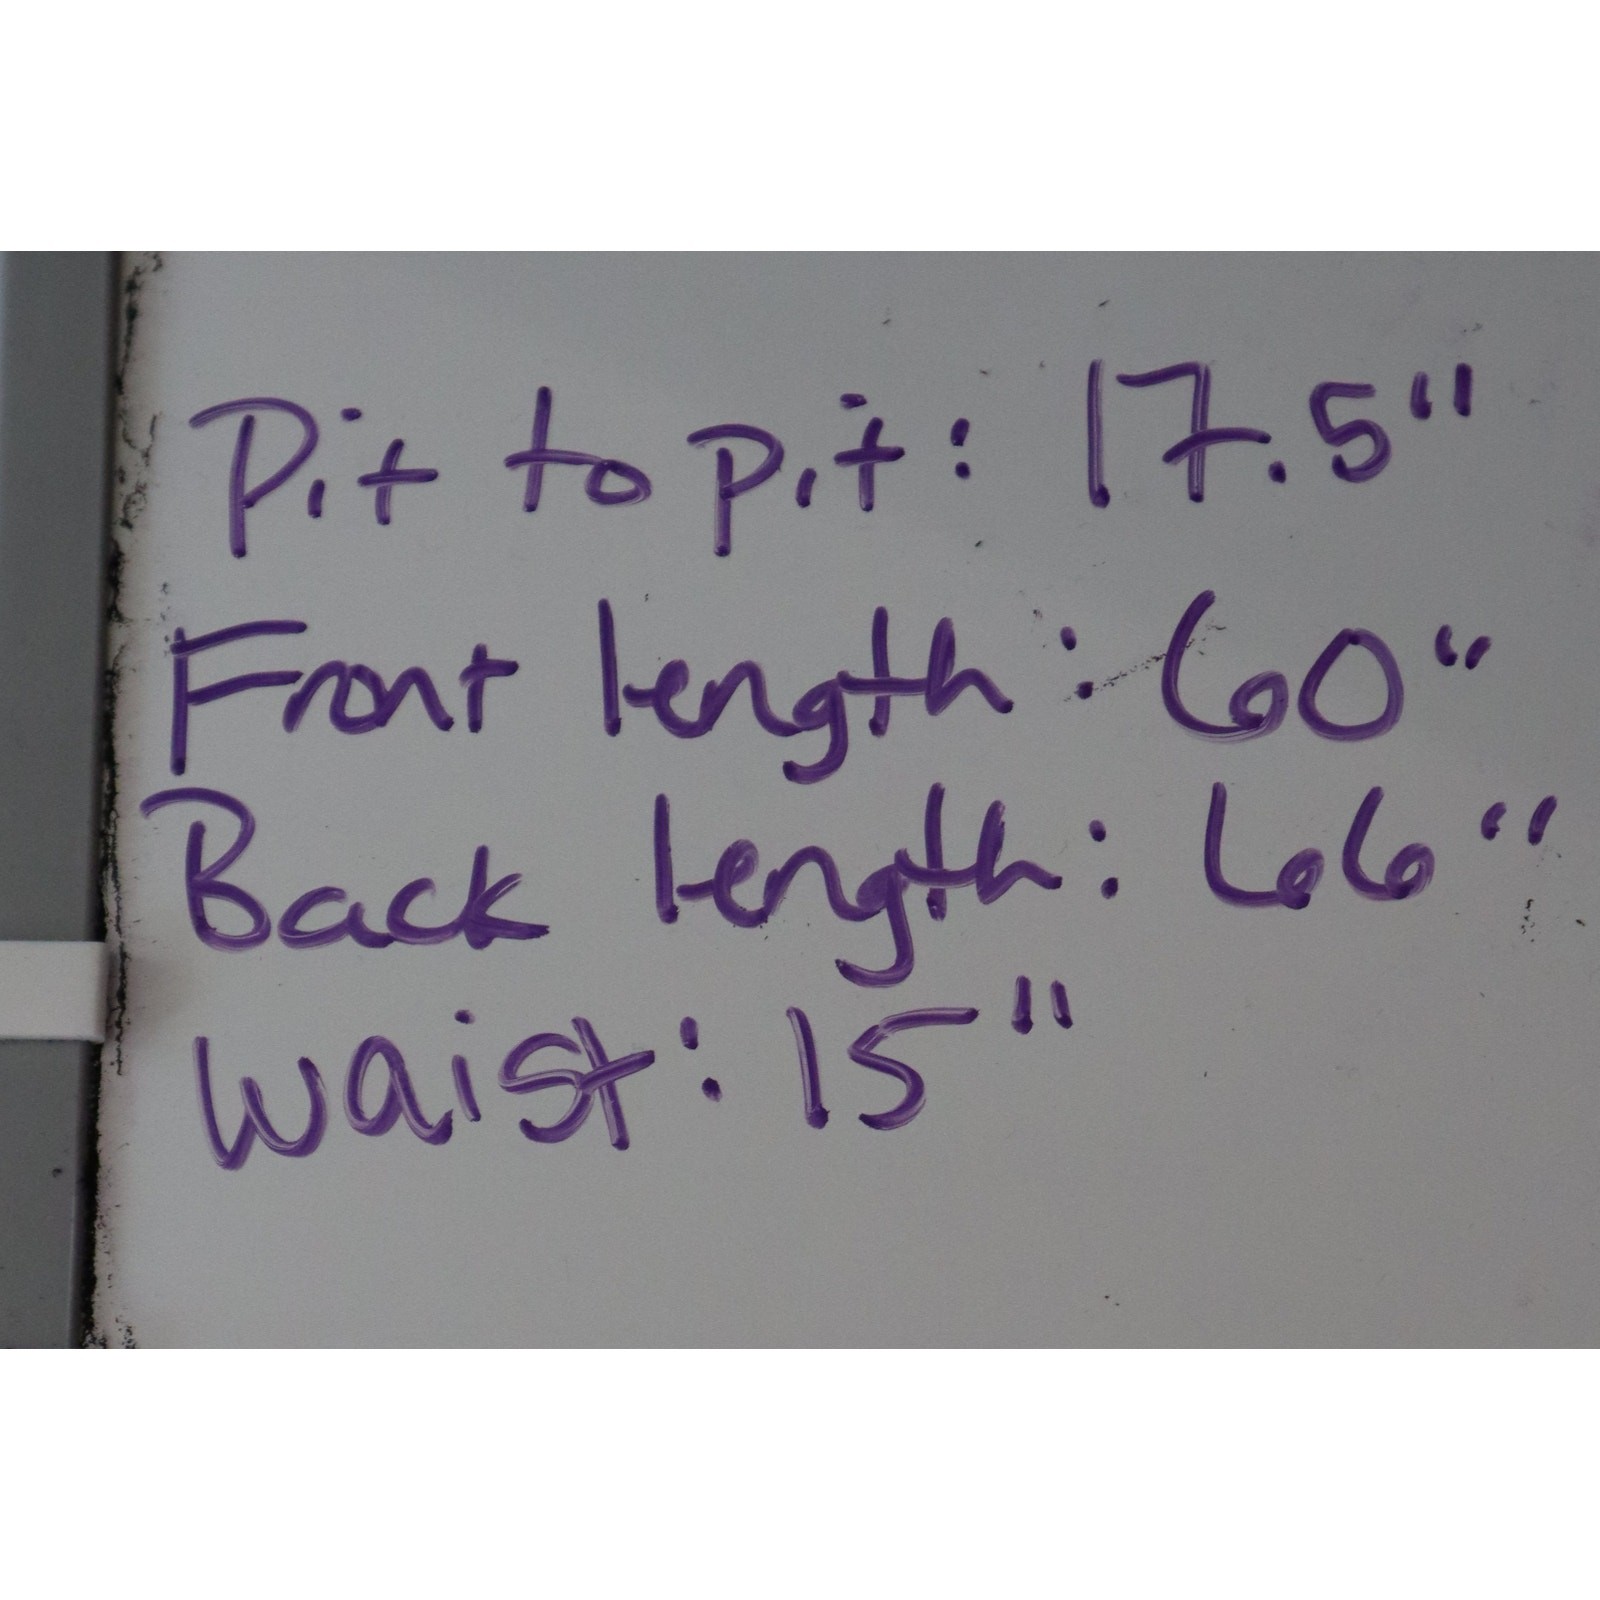 Pit to pit: 17.5"
Front length: 60"
Back length: 66"
Waist: 15"